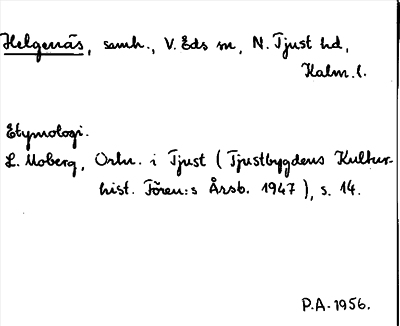 Helgenäs, samh., V. Eds sn, N. Tjust hd,
Kalm. l.
Etymologi.
L. Moberg, Ortn. i Tjust (Tjustbygdens Kultur-
hist. Fören:s Årsb. 1947), s. 14.
P.A. 1956.